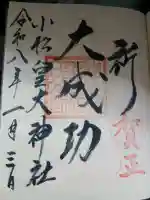 祈
賀正
大成功
小松皇大神社
令和八年一月三日